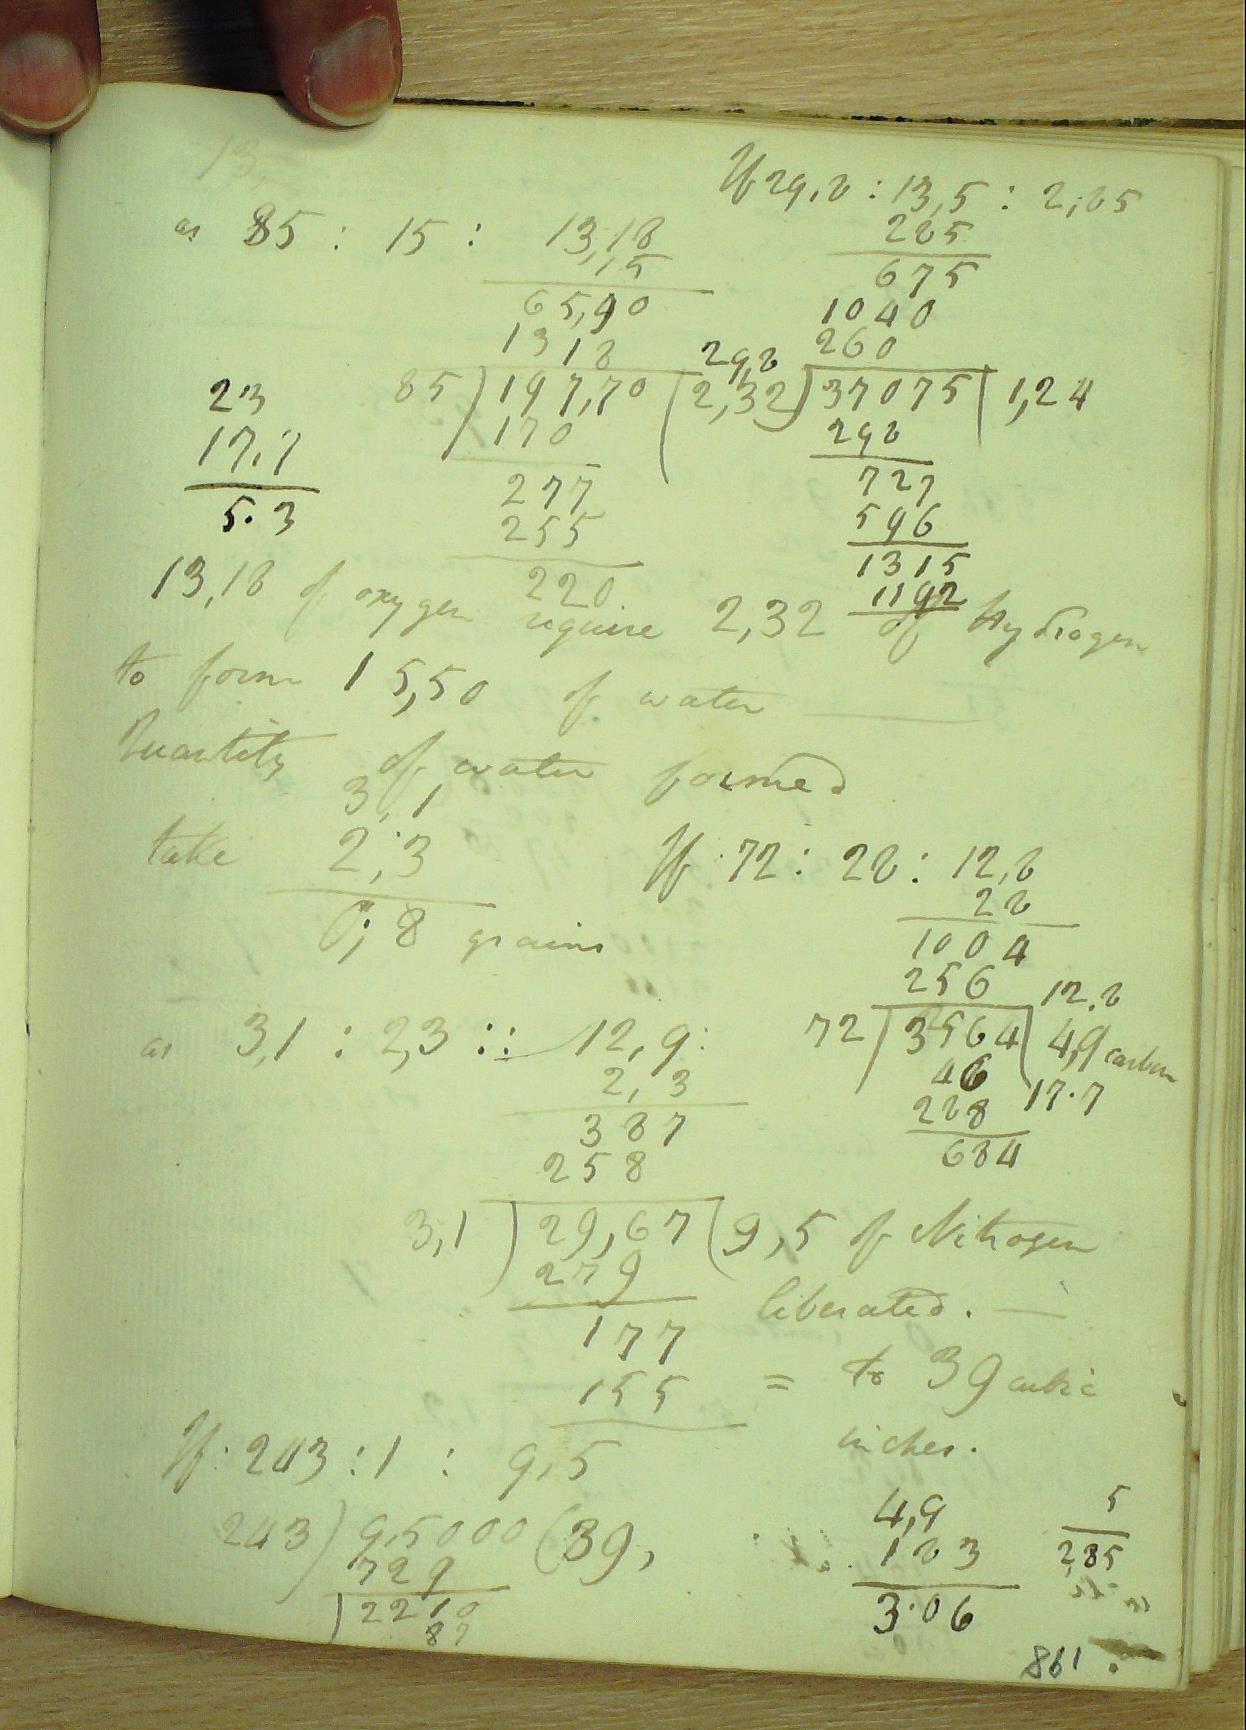 If 29,8 : 13,5 : 2,85
285
675
1040
260
29,8 ) 37075 ( 1,24
298
727
596
1315
1192
as 85 : 15 : 13,18
,15
65,90
1318
85 ) 197,70 ( 2,32
170
277
255
220
23
17.7
5.3
13,18 of oxygen require 2,32 of hydrogen
to form 15,50 of water
Quantity of water formed
3,1
take 2,3
0,8 grains
If 72 : 28 : 12,8
28
1004
256
72 ) 3564 ( 4,9 carbon
12.8
17.7
46
288
684
as 3,1 : 2,3 :: 12,9 :
2,3
387
258
3,1 ) 29,67 ( 9,5 of Nitrogen
279
liberated.
177
155
= to 39 cubic
inches.
If 243 : 1 : 9,5
243 ) 9,5000 ( 39,
729
2210
87
4,9
183
3.06
5
2,85
861.